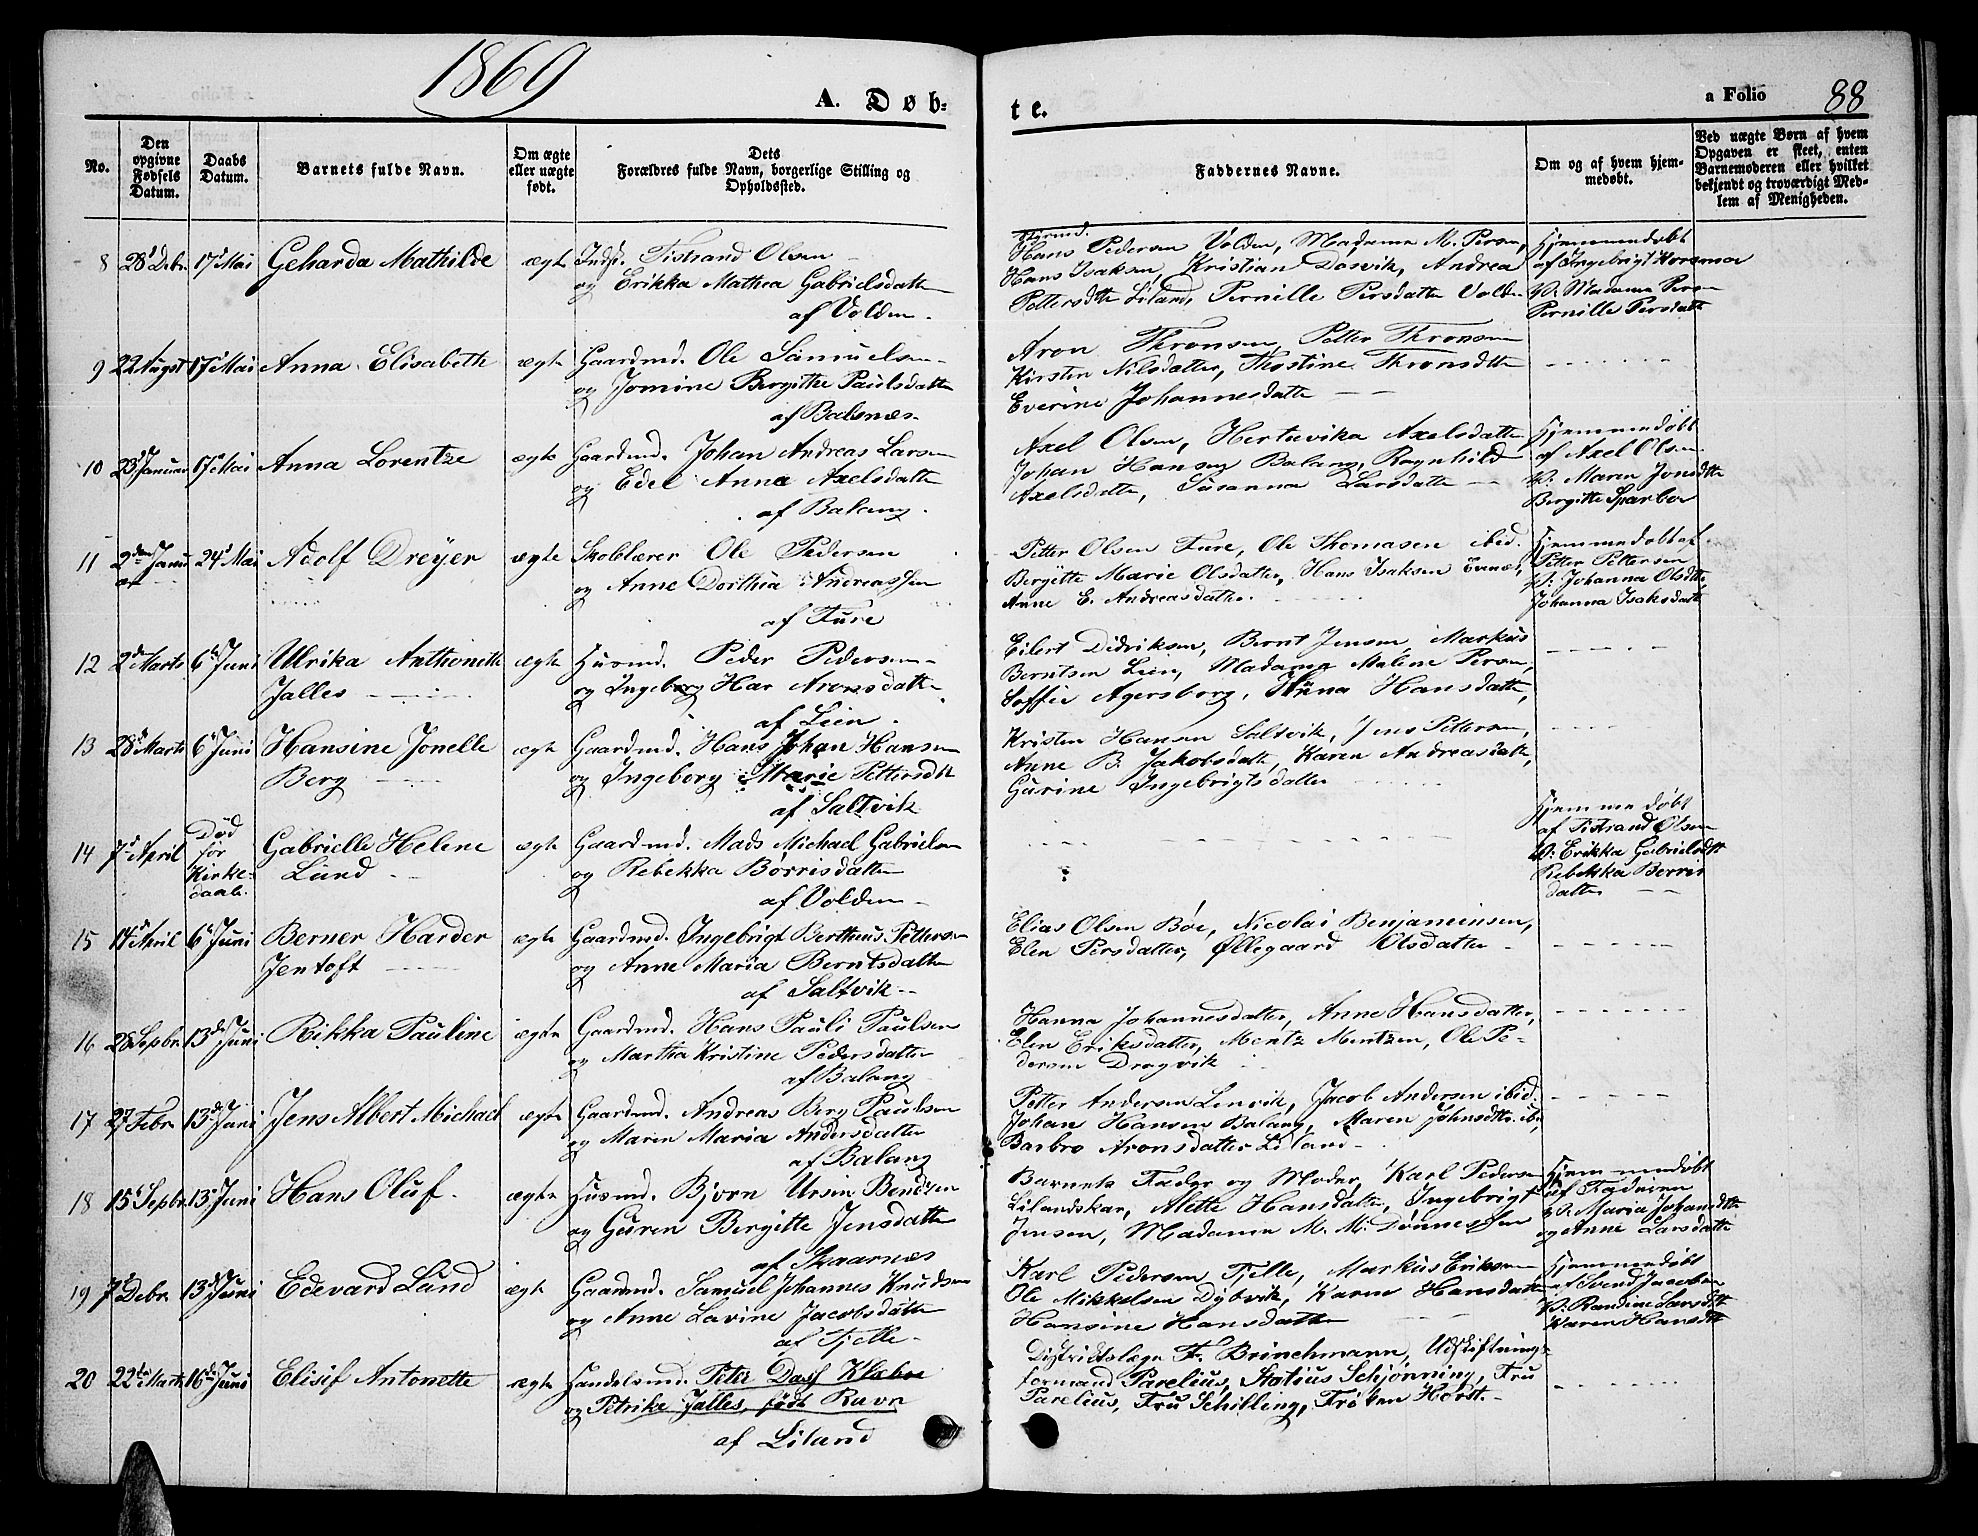 1869
A. Døb-
te.
a Folio 88
No.
Den opgivne Fødsels Datum.
Daabs Datum.
Barnets fulde Navn.
Om ægte eller uægte født.
Dets Forældres fulde Navn, borgerlige Stilling og Opholdssted.
Faddernes Navne.
Om og af hvem hjemmedøbt.
Ved uægte Børn af hvem Opgaven er skeet, enten Barnemoderen eller hvilket bekjendt og troværdigt Medlem af Menigheden.
8 28 Debr. 17 Mai Geharda Mathilde ægte Inds. Tistrand Olsen
og Erikka Mathea Gabrielsdatter
af Volden.
Hans Pedersen Volden, Madame M. Persen,
Hans Isaksen, Kristian Dosvik, Andrea
Pettersdtr Liland, Pernille Persdatter Volden
Hjemmedøbt
af Ingebrigt
V: Madame Persen
Pernille Persdatter
9 22 August 17 Mai Anna Elisabeth ægte Gaardmd. Ole Samuelsen
og Jomine Birgithe Paulsdatter
af Balsnæs
Aron Thronsen, Petter Thronsen
Kirsten Nilsdatter, Thostine Thronsdtr
Everine Johannesdatter
10 23 Januar 17 Mai Anna Lorentze ægte Gaardmd. Johan Andreas Larsen
og Edel Anna Axelsdatter
af Balang.
Axel Olsen, Hertuvika Axelsdatter
Johan Hansen Balang, Ragnhild
Axelsdatter, Susanna Larsdatter
Hjemmedøbt
af Axel Olsen
V: Maren Jonsdtr
Birgitte Sparboe
11 2den Janu ar 24 Mai Adolf Dreyer ægte Skolelærer Ole Pedersen
og Anne Dorthea Andreassen
af Fure
Petter Olsen Fure, Ole Thomasen ibid.
Bergitte Marie Olsdatter, Hans Isaksen Evnes,
Anne E. Andreasdatter.
Hjemmedøbt af
Petter Pettersen
V: Johanna Olsdtr
Johanna Isaksdatter
12 2den Marts 6 Juni Ulrika Anthonette ægte Husmd. Peder Pedersen
Jalles
og Ingeborg Har Aronsdatter
af Lien.
Eilert Didriksen, Bernt Jensen, Markus
Berntsen Lien, Madame Malene Persen,
Soffie Agersborg, Anna Hansdatter,
13 28 Marts 6 Juni Hansine Jonelle ægte Gaardmd. Hans Johan Hansen
Berg
og Ingeborg Marie Pettersdtr
af Saltvik
Kristen Hansen Saltvik, Jens Pettersen,
Anne B. Jakobsdatter, Karen Andreasdatter,
Gurine Ingebrigtsdatter
14 7 April Død før Kirke-daab. Gabrielle Helene ægte Gaardmd. Mads Michael Gabrielsen
Lund
og Rebekka Børrisdatter
af Volden
Hjemmedøbt
af Tistrand Olsen
V: Erikka Gabrielsdtr
Rebekka Berris
datter
15 14 April 6 Juni Berner Harder ægte Gaardmd. Ingebrigt Bertheus Pettersen
Jentoft
og Anne Maria Berntsdatter
af Saltvik
Elias Olsen Bøe, Nicolai Benjaminsen,
Elen Persdatter, Øllegaard Olsdatter
16 28 Sepbr. 13de Juni Rikka Pauline ægte Gaardmd. Hans Pauli Paulsen
og Martha Kristine Pedersdatter
af Balang
Hanna Johannesdatter, Anne Hansdatter,
Elen Eriksdatter, Mentz Mentzen, Ole Pe-
dersen Dragvik
17 27 Febr. 13de Juni Jens Albert Michael ægte Gaardmd. Andreas Berg Paulsen
og Maren Maria Andersdatter
af Balang
Petter Andersen Lenvik, Jacob Andersen ibid.
Johan Hansen Balang, Maren Johnsdtr. ibid,
Barbro Aronsdatter Liland
18 15 Sepbr. 13 Juni Hans Oluf. ægte Husmd. Bjørn Ursin Bendsen
og Guren Bergitte Jensdatter
af Skaarnæs
Barnets Fader og Moder, Karl Pedersen
Lilandskar, Alette Hansdatter, Ingebrigt
Jensen, Madame M. M. Dønnessen
Hjemmedøbt
af Faderen
V: Maria Johansdtr
og Anne Larsdatter
19 7 Debr. 13de Juni Edevard Lund ægte Gaardmd. Samuel Johannes Knudsen
og Anne Lavine Jacobsdatter
af Fjelle
Karl Pedersen Fjelle, Markus Eriksen
Ole Mikkelsen Dybvik, Karen Hansdatter
Hansine Hansdatter
Hjemmedøbt
af Svend Jacobsen
V: Randine Larsdtr
Karen Hansdtr
20 22de Marts 16de Juni Elisif Antonette ægte Handelsmd. Peter Dass Klæboe
og Petrike Jalles, født Ravn
af Liland
Distriktslæge F. Brinchmann, Udskiftnings-
formand Parelius, Statius Schjønning, Fru
Parelius, Fru Schilling, Frøken Horst.